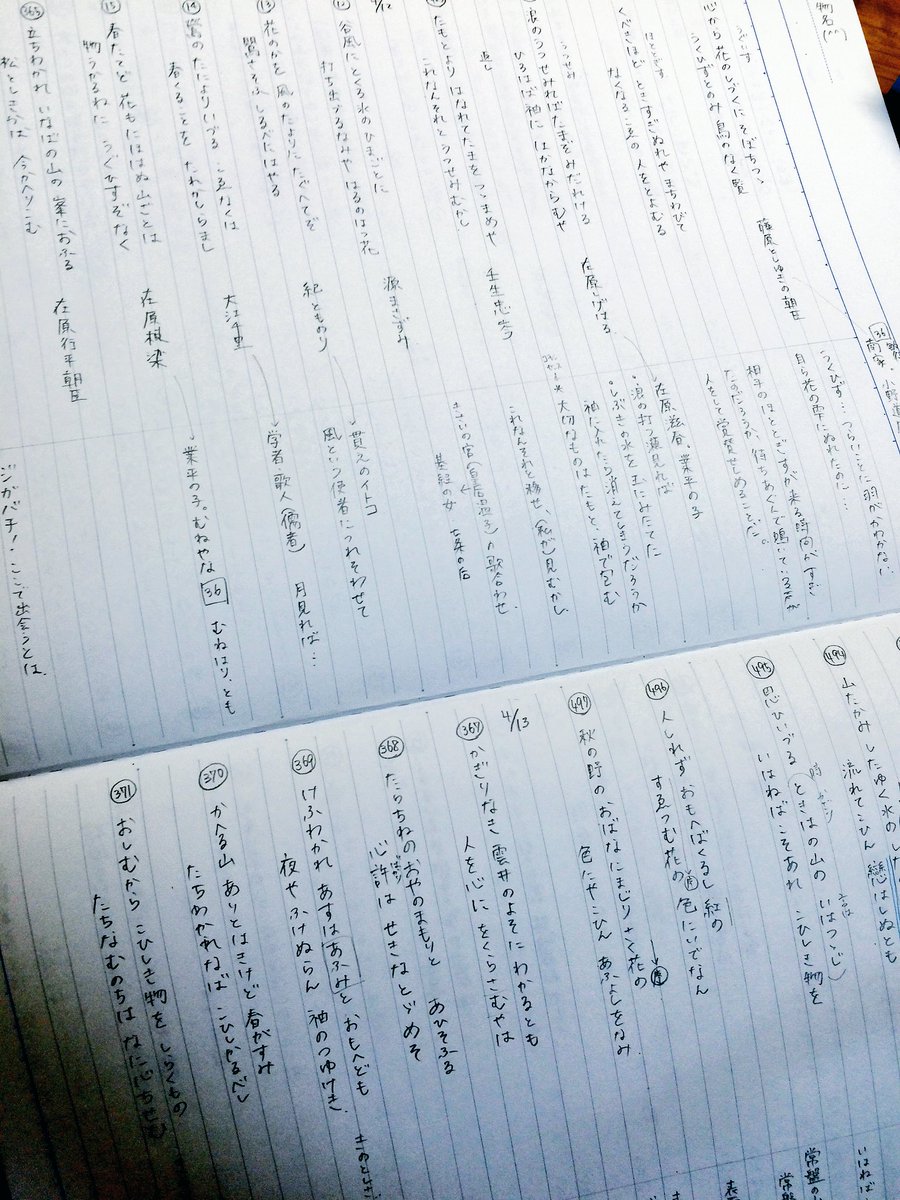 物名(''')
うぐひす
心から花のしづくにそぼちつゝ
うくひずとのみ鳥のなく覧
藤原としゆきの朝臣
ほとゝぎす
くべきほど ときすぎぬれや まちわびて
なくなるこゑの 人をとよむる
うつせみ
浪のうつせみればたまぞみだれける
ひろはば袖に はかなからむや
在原しげはる
返し
たもとより はなれてたまを つゝまめや
これなんそれと うつせみむかし
壬生忠岑
4/12
⑫
谷風に とくる氷の ひまごとに
打ち出づるなみや はるのはつ花
源まさずみ
⑬
花のかを 風のたよりに たぐへてぞ
鶯さそふ しるべにはやる
紀とものり
⑭
鶯の たによりいづる こゑなくは
春くることを たれかしらまし
大江千里
⑮
春たてど 花もにほはぬ 山ざとは
物うかるねに うぐひすぞなく
在原棟梁
365
立ちわかれ いなばの山の 峯におふる
松としきかば 今かへりこむ
在原行平朝臣
36
うくひず…つらいことに羽がかわかない
自ら花の雫にぬれたのに…
相手のほととぎすが来る時間がすぎ
たのだろうか、待ちあぐんで鳴いている声が
人をして覚賛せしめることだ。
在原滋春、業平の子
・浪の打つ瀬見れば
・しぶきの水を玉にみたてた
袖に入れたら消えてしまうだろうか
大切なものはたもと、袖で包む
これなんそれと移せ、(私が)見むかし
きさいの宮(皇后温子)の歌合わせ
基経の女 七条の后
→貫之のイトコ
風という使者につれそわせて
→学者、歌人(儒者) 月見れば…
→業平の子。むねやな 36 むねはり、とも
ジガバチ!ここで出会うとは。
494
山たかみ したゆく水の した
流れてこひん 戀はしぬとも
495
思ひいづる ときはの山の いはつゝじ
いはねばこそあれ こひしき物を
496
人しれず おもへばくるし 紅の
すゑつむ花の 色にいでなん
497
秋の野の おばなにまじり さく花の
色にやこひん あふよしをなみ
4/13
367
かぎりなき 雲井のよそに わかるとも
人を心に をくらさむやは
368
たらちねの おやのまもりと あひそふる
心許は せきなとゞめそ
369
けふわかれ あすはあふみと おもへども
夜やふけぬらん 袖のつゆけき
370
かへる山 ありとはきけど 春がすみ
たちわかれなば こひしかるべし
371
おしむから こひしき物を しらくもの
たちなむのちは なに心ちせむ
いはねば
常盤の